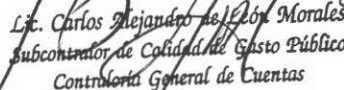 Lic. Carlos Alejandro de León Morales
Subcontralor de Calidad de Gasto Público
Contraloría General de Cuentas